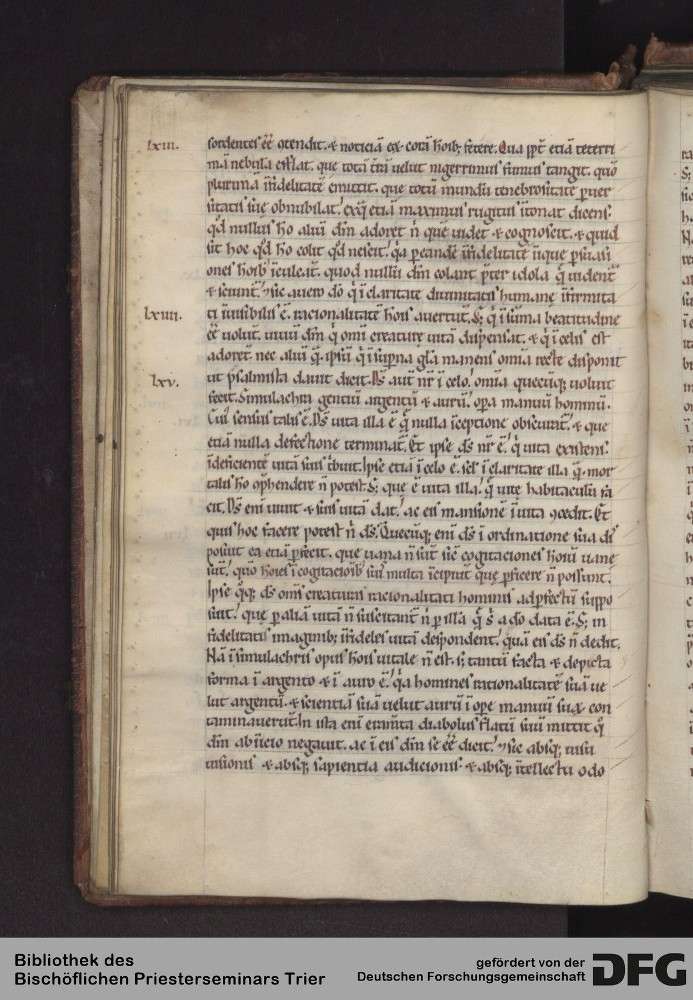 lxiii. sordentes eē ꝯtendit. & noticiā ex corā hoib; fetere. Qua ppt̄ etiā teterri
mā nebulā efflat. que totā t̄rā uelut nigerrimus fumus tangit. quō
plurimā ĩfidelitatē emittit. que totū mundū tenebrositate puer
sitatis sue obnubilat. exq̨ etiā maximus rugitus ĩtonat dicens.
qd̄ nullus hō aliū dm̄ adoret n̄ que uidet & cognoscit. & quid
sit hoc qd̄ hō colit qd̄ nescit. q̄a
ones hoib; ĩculcat. quod nullū dm̄ colant pter idola q̄ uident
& sciunt. sic auero dō q̄ ĩ claritate diuinitatis humane ĩfirmita
lxiiii. ti ĩuisibilis ē. racionalitatē hois auertūt. S; q̄ ĩ sūma beatitudine
eē uoluit. uiuū dm̄ q̄ omī creature uitā dispensat. & q̄ ĩ celis est
adoret. nec aliū q̄. ipsū q̄ ĩ supna glā manens omīa recte disponit
lxv. ut psalmista dauit dicit. Ds̄ aut̄ nr̄ ĩ celo. omīa quecūq; uoluit
fecit. Simulachra gentiū argentū & aurū. opa manuū hominū.
Cui sensus talis ē. Ds̄ uita illa ē q̄ nulla ĩceptione obscurat̄. & que
etiā nulla defectione terminat̄. Et ipse ds̄ nr̄ ē. q̄ uita existens.
ĩdeficientē uitā suis t̄buit. Ipse etiā ĩ celo ē. scł ĩ claritate illa q̄ mor
talis hō ophendere n̄ potest. S; que ē uita illa. q̄ uite habitaculū fa
cit. Ds̄ eni uiuit & suis uitā dat. ac eis mansionē ĩ uita ꝯcedit. Et
quis hoc facere potest n̄ ds̄. Quecūq; eni ds̄ ĩ ordinatione sua di
posuit ea etiā pfecit. que uana n̄ sūt sic cogitaciones hoiū uane
sūt. quō hoies ĩ cogitacioīb suis multa ĩcipiūt que pficere n̄ possunt.
Ipse q̄q; ds̄ omīs creaturas racionalitati hominis ad pfectū suppo
suit. que p aliā uitā n̄ suscitant̄ n̄ p illā q̄ s a dō data ē. S; in
fidelitatis imaginib; ĩfideles uitā despondent. quā eis ds̄ n̄ dedit.
Nā ĩ simulachris opus hois uitale n̄ est. s; tantū facta & depicta
forma ĩ argento & ĩ auro ē. q̄a homines racionalitatē suā ue
lut argentū. & scientiā suā uelut aurū ĩ ope manuū suaꝝ con
taminauerūt. In ista eni diabolus flatū suū mittit q̄
dm̄ ab ĩicio negauit. ac ĩ eis dm̄ se eē dicit. sic absq; uisu
uisionis & absq; sapientia audicionis & absq; ĩtellectu odo
Bibliothek des
Bischöflichen Priesterseminars Trier
gefördert von der
Deutschen Forschungsgemeinschaft
DFG